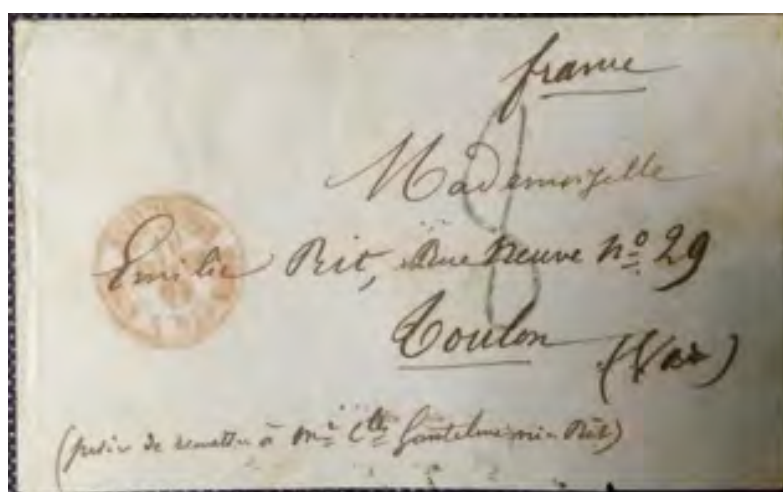 france
Mademoiselle
Emilie Rit, Rue Neuve nº 29
Toulon
(Var)
(prière de remettre à Mᵉ Cᵗᵉ Gantelme née Rit)
8